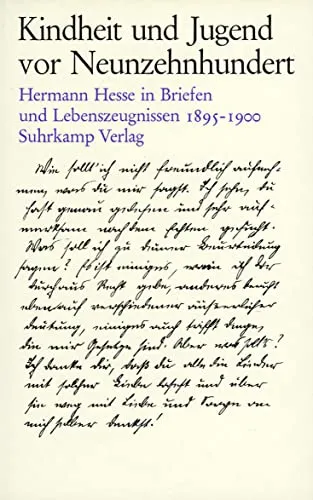 Kindheit und Jugend
vor Neunzehnhundert
Hermann Hesse in Briefen
und Lebenszeugnissen 1895-1900
Suhrkamp Verlag
Wie sollt' ich nicht freundlich aufneh-
men, was du mir sagst. Ich sehe, du
hast genau gelesen und sehr auf-
merksam nach dem Echten gesucht.
Was soll ich zu deiner Beurteilung
sagen? Es ist einiges, worin ich dir
durchaus Recht gebe, anderes
eben auch verschiedener
Deutung, einiges auch trifft Dinge,
die mir Gesetze sind. Aber was soll's?
Ich danke dir, daß du alle die Lieder
mit solcher Liebe und über
sie weg mit Liebe und Sorge an
mich selber denkst!